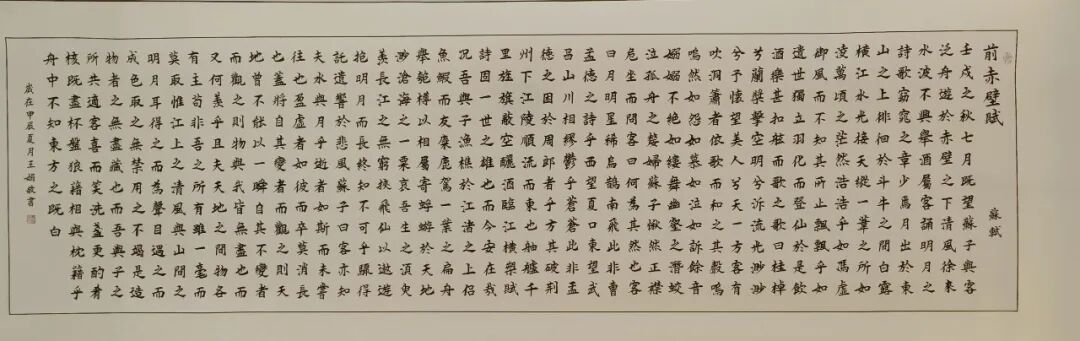 前赤壁賦 蘇軾
壬戌之秋七月既望蘇子與客
泛舟遊於赤壁之下清風徐來
水波不興舉酒屬客誦明月之
詩歌窈窕之章少焉月出於東
山之上徘徊於斗牛之間白露
橫江水光接天縱一葦之所如
淩萬頃之茫然浩浩乎如馮虛
御風而不知其所止飄飄乎如
遺世獨立羽化而登仙於是飲
酒樂甚扣舷而歌之歌曰桂棹
兮蘭槳擊空明兮泝流光渺渺
兮予懷望美人兮天一方客有
吹洞簫者依歌而和之其聲嗚
嗚然如怨如慕如泣如訴餘音
嫋嫋不絕如縷舞幽壑之潛蛟
泣孤舟之嫠婦蘇子愀然正襟
危坐而問客曰何為其然也客
曰月明星稀烏鵲南飛此非曹
孟德之詩乎西望夏口東望武
昌山川相繆鬱乎蒼蒼此非孟
德之困於周郎者乎方其破荊
州下江陵順流而東也舳艫千
里旌旗蔽空釃酒臨江橫槊賦
詩固一世之雄也而今安在哉
況吾與子漁樵於江渚之上侶
魚蝦而友麋鹿駕一葉之扁舟
舉匏樽以相屬寄蜉蝣於天地
渺滄海之一粟哀吾生之須臾
羨長江之無窮挾飛仙以遨遊
抱明月而長終知不可乎驟得
託遺響於悲風蘇子曰客亦知
夫水與月乎逝者如斯而未嘗
往也盈虛者如彼而卒莫消長
也蓋將自其變者而觀之則天
地曾不能以一瞬自其不變者
而觀之則物與我皆無盡也而
又何羨乎且夫天地之間物各
有主苟非吾之所有雖一毫而
莫取惟江上之清風與山間之
明月耳得之而為聲目遇之而
成色取之無禁用之不竭是造
物者之無盡藏也而吾與子之
所共適客喜而笑洗盞更酌肴
核既盡杯盤狼籍相與枕籍乎
舟中不知東方之既白
歲在甲辰夏月王娟敬書